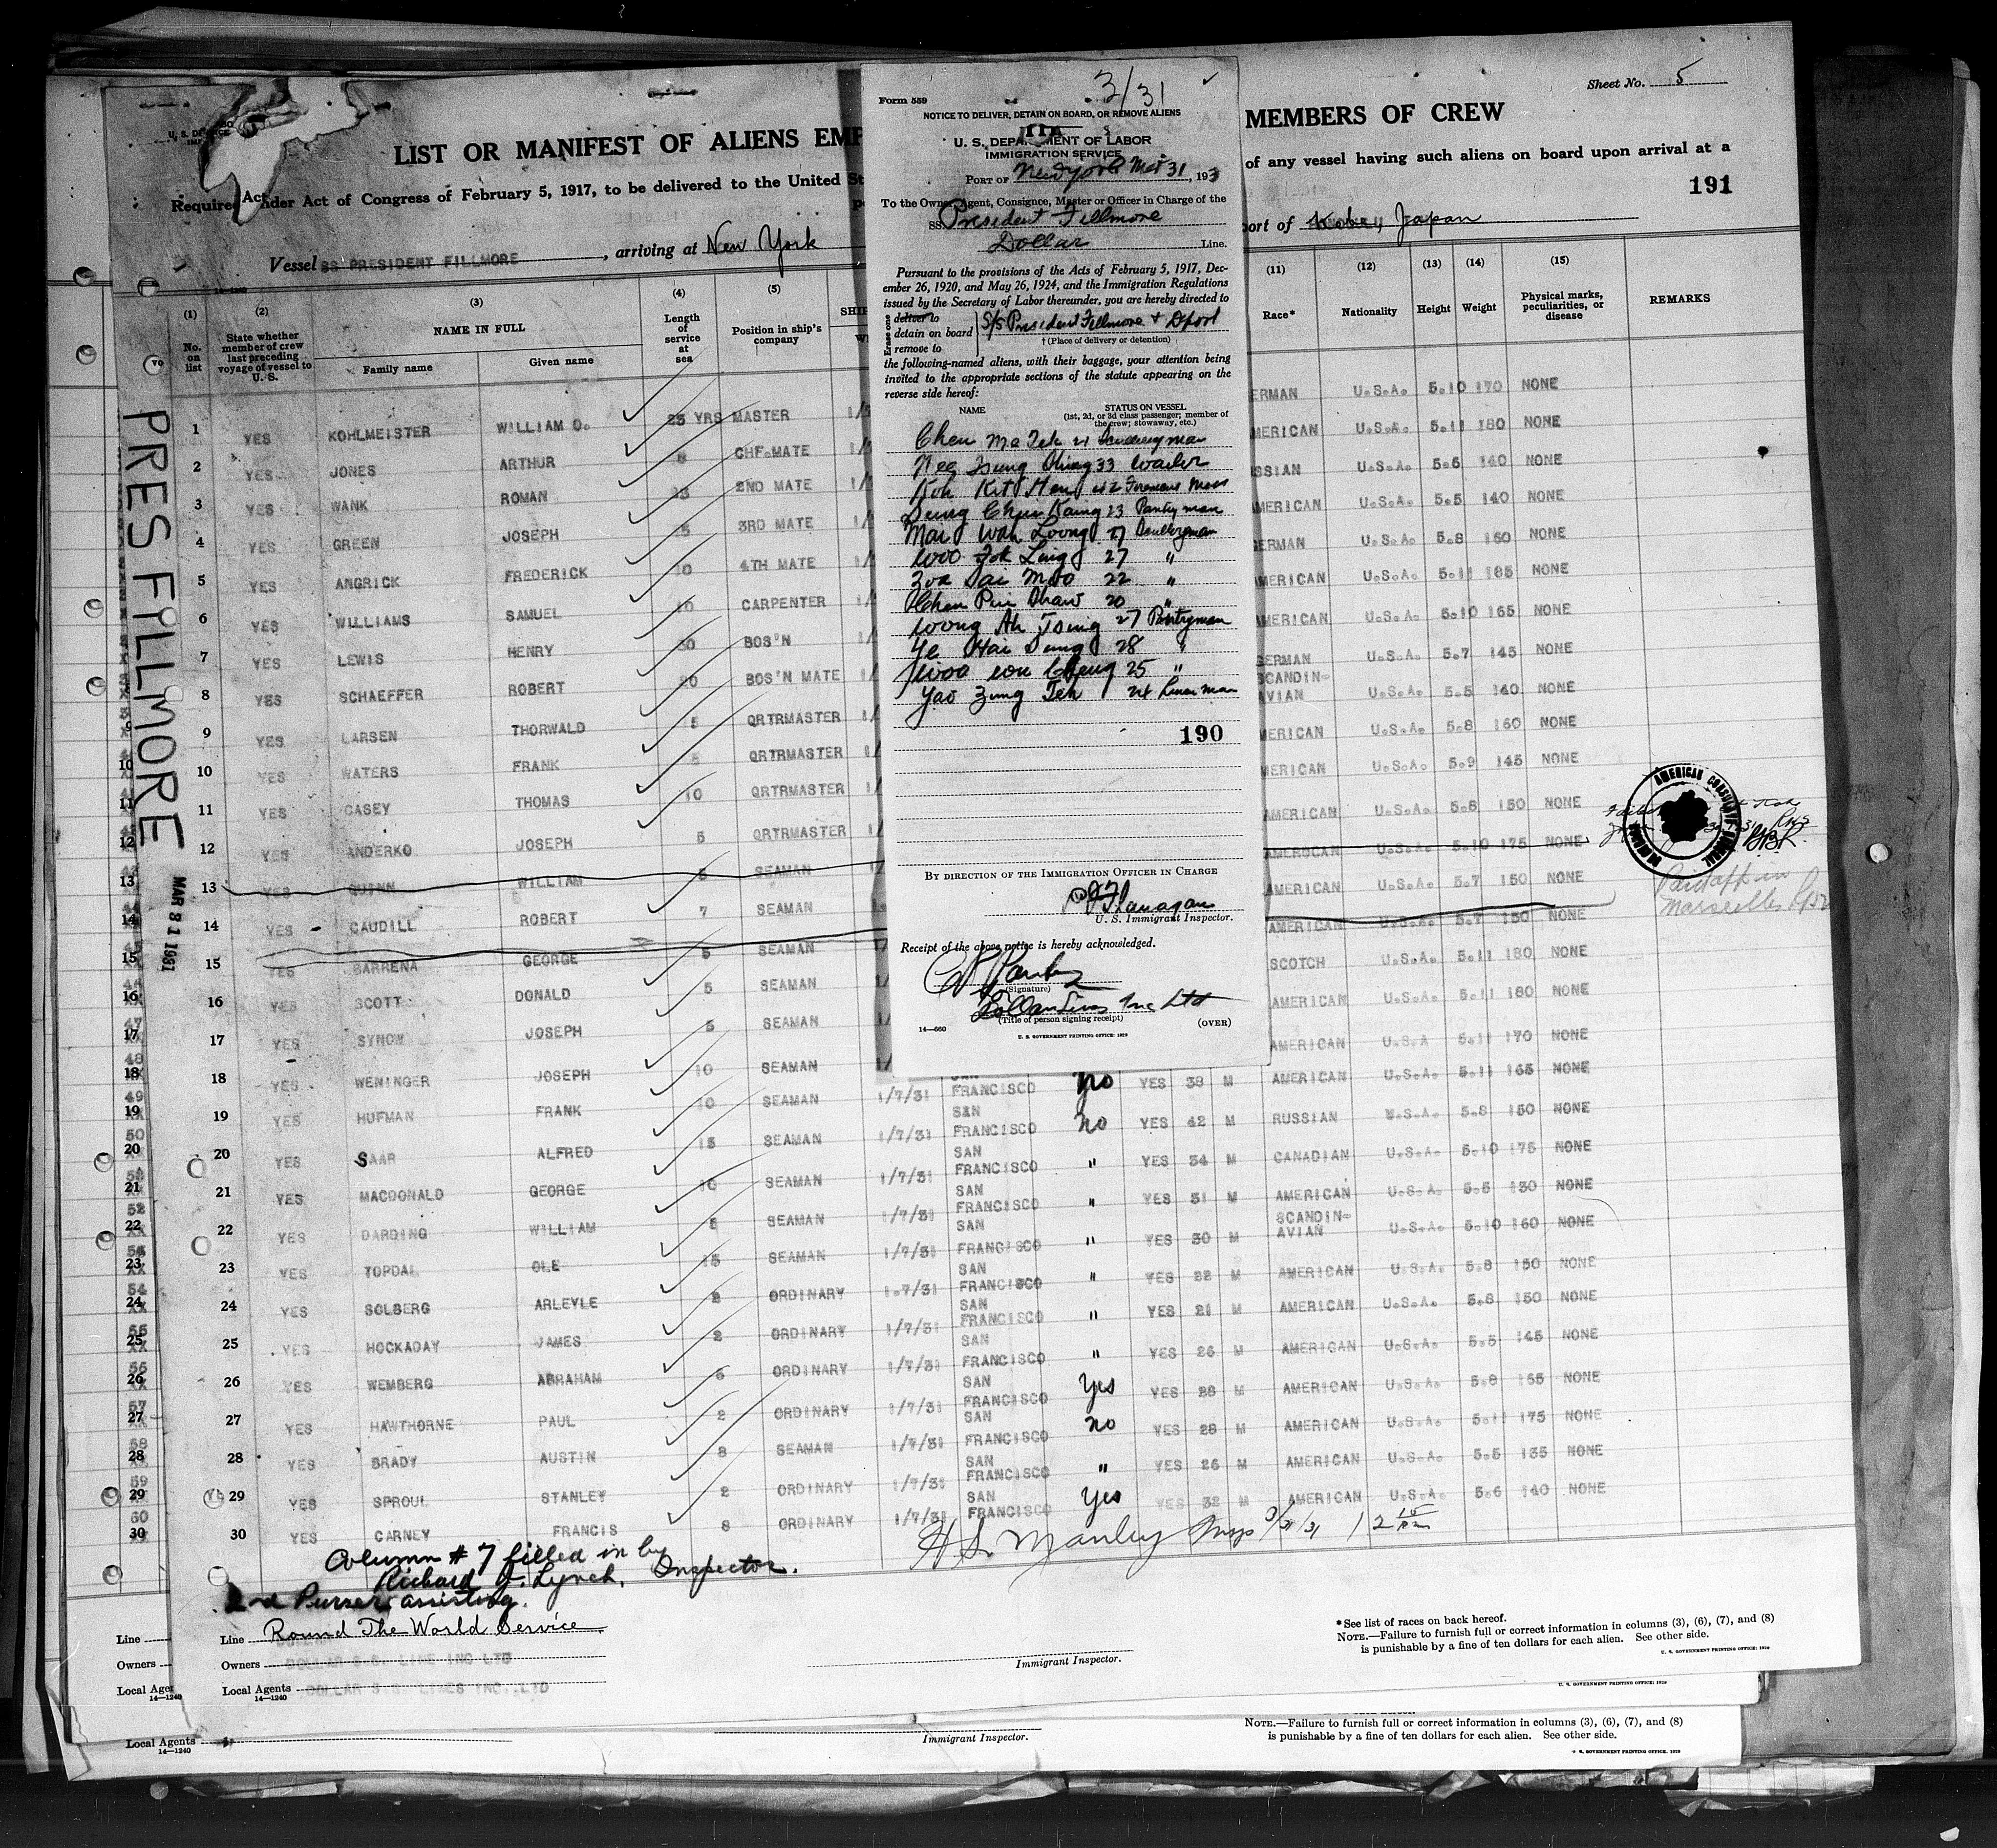 Sheet No. 5
LIST OR MANIFEST OF ALIENS EMP
MEMBERS OF CREW
Required under Act of Congress of February 5, 1917, to be delivered to the United St
of any vessel having such aliens on board upon arrival at a
191
Vessel SS PRESIDENT FILLMORE, arriving at New York
port of Kobe, Japan
PRES FILLMORE
MAR 31 1931
Form 559
3/31
NOTICE TO DELIVER, DETAIN ON BOARD, OR REMOVE ALIENS
U. S. DEPARTMENT OF LABOR
IMMIGRATION SERVICE
PORT OF New York Mar 31, 193
To the Owner, Agent, Consignee, Master or Officer in Charge of the
SS. President Fillmore
Dollar Line.
Pursuant to the provisions of the Acts of February 5, 1917, Dec-
ember 26, 1920, and May 26, 1924, and the Immigration Regulations
issued by the Secretary of Labor thereunder, you are hereby directed to
Erase one
deliver to
detain on board S/S President Fillmore + Dport
remove to
† (Place of delivery or detention)
the following-named aliens, with their baggage, your attention being
invited to the appropriate sections of the statute appearing on the
reverse side hereof:
NAME STATUS ON VESSEL
(1st, 2d, or 3d class passenger; member of
the crew; stowaway, etc.)
Chen 21
Nee Tsung 33
Koh Kit Hen 42 Firemens Mess
Chun Kaing 23 Pantryman
Mai Wah Loong 27 Sculleryman
Woo Fok Ling 27 "
Zoa Sai Moo 22 "
Chan Pin Shaw 20 "
Woong Ah Tsing 27 Pantryman
Ye Hai Sung 28 "
Woo 25 "
Yao Zung Teh 24 Linenman
190
BY DIRECTION OF THE IMMIGRATION OFFICER IN CHARGE
Flanagan
U. S. Immigrant Inspector.
Receipt of the above notice is hereby acknowledged.
(Signature)
Inc Ltd
(Title of person signing receipt)
14—660 (OVER)
U. S. GOVERNMENT PRINTING OFFICE: 1929
(1) (2) (3) (4) (5) (11) (12) (13) (14) (15)
No. on list
State whether member of crew last preceding voyage of vessel to U. S.
NAME IN FULL
Family name Given name
Length of service at sea
Position in ship's company
Race* Nationality Height Weight
Physical marks, peculiarities, or disease
REMARKS
1 YES KOHLMEISTER WILLIAM O. 25 YRS MASTER ERMAN U.S.A. 5.10 170 NONE
2 YES JONES ARTHUR CHF.MATE MERICAN U.S.A. 5.11 180 NONE
3 YES WANK ROMAN 2ND MATE SSIAN U.S.A. 5.6 140 NONE
4 YES GREEN JOSEPH 3RD MATE MERICAN U.S.A. 5.5 140 NONE
5 YES ANGRICK FREDERICK 4TH MATE ERMAN U.S.A. 5.8 150 NONE
6 YES WILLIAMS SAMUEL CARPENTER MERICAN U.S.A. 5.11 185 NONE
7 YES LEWIS HENRY BOS'N MERICAN U.S.A. 5.10 165 NONE
8 YES SCHAEFFER ROBERT BOS'N MATE GERMAN U.S.A. 5.7 145 NONE
9 YES LARSEN THORWALD 5 QRTRMASTER SCANDIN-AVIAN U.S.A. 5.5 140 NONE
10 YES WATERS FRANK QRTRMASTER MERICAN U.S.A. 5.8 160 NONE
11 YES CASEY THOMAS 10 QRTRMASTER MERICAN U.S.A. 5.9 145 NONE
12 YES ANDERKO JOSEPH 5 QRTRMASTER AMERICAN U.S.A. 5.8 150 NONE
13 YES QUINN WILLIAM 5 SEAMAN AMERICAN U.S.A. 5.10 175 NONE
14 YES CAUDILL ROBERT 7 SEAMAN AMERICAN U.S.A. 5.7 150 NONE
15 YES BARRENA GEORGE 5 SEAMAN AMERICAN U.S.A. 5.7 150 NONE
16 YES SCOTT DONALD 5 SEAMAN SCOTCH U.S.A. 5.11 180 NONE
17 YES SYNOW JOSEPH 5 SEAMAN AMERICAN U.S.A. 5.11 180 NONE
18 YES WENINGER JOSEPH 10 SEAMAN AMERICAN U.S.A 5.11 170 NONE
19 YES HUFMAN FRANK 10 SEAMAN 1/7/31 SAN FRANCISCO no YES 38 M AMERICAN U.S.A. 5.11 165 NONE
20 YES SAAR ALFRED 15 SEAMAN 1/7/31 SAN FRANCISCO no YES 42 M RUSSIAN U.S.A. 5.8 150 NONE
21 YES MACDONALD GEORGE 10 SEAMAN 1/7/31 SAN FRANCISCO " YES 34 M CANADIAN U.S.A. 5.10 175 NONE
22 YES DARDING WILLIAM 5 SEAMAN 1/7/31 SAN FRANCISCO " YES 31 M AMERICAN U.S.A. 5.5 130 NONE
23 YES TOPDAL OLE 15 SEAMAN 1/7/31 SAN FRANCISCO " YES 30 M SCANDIN-AVIAN U.S.A. 5.10 160 NONE
24 YES SOLBERG ARLEYLE 2 ORDINARY 1.7/31 SAN FRANCISCO " YES 22 M AMERICAN U.S.A. 5.8 150 NONE
25 YES HOCKADAY JAMES 2 ORDINARY 1/7/31 SAN FRANCISCO " YES 21 M AMERICAN U.S.A. 5.8 150 NONE
26 YES WEMBERG ABRAHAM 6 ORDINARY 1/7/31 SAN FRANCISCO " YES 26 M AMERICAN U.S.A. 5.5 145 NONE
27 YES HAWTHORNE PAUL 2 ORDINARY 1/7/31 SAN FRANCISCO Yes YES 28 M AMERICAN U.S.A. 5.8 155 NONE
28 YES BRADY AUSTIN 8 SEAMAN 1/7/31 SAN FRANCISCO no YES 28 M AMERICAN U.S.A. 5.11 175 NONE
29 YES SPROUL STANLEY 2 ORDINARY 1/7/31 SAN FRANCISCO " YES 26 M AMERICAN U.S.A. 5.5 135 NONE
30 YES CARNEY FRANCIS 8 ORDINARY 1/7/31 SAN FRANCISCO Yes YES 32 M AMERICAN U.S.A. 5.6 140 NONE
AMERICAN CONSULATE GENERAL
Paid off in
Marseilles
H. S. Manley Insp 3/31/31 12 15 PM
Column # 7 filled in by
Richard J. Lynch, Inspector.
2nd Purser assisting.
Line Round The World Service
Owners DOLLAR S.S. LINE INC LTD
Local Agents DOLLAR S.S. LINES INC., LTD
14—1240
Immigrant Inspector.
*See list of races on back hereof.
NOTE.—Failure to furnish full or correct information in columns (3), (6), (7), and (8)
is punishable by a fine of ten dollars for each alien. See other side.
U. S. GOVERNMENT PRINTING OFFICE: 1929
Line
Owners
Local Ager
14—1240
U. S. GOVERNMENT PRINTING OFFICE: 1929
Local Agents
14—1240
Immigrant Inspector.
NOTE.—Failure to furnish full or correct information in columns (3), (6), (7), and (8)
is punishable by a fine of ten dollars for each alien. See other side.
U. S. GOVERNMENT PRINTING OFFICE: 1929